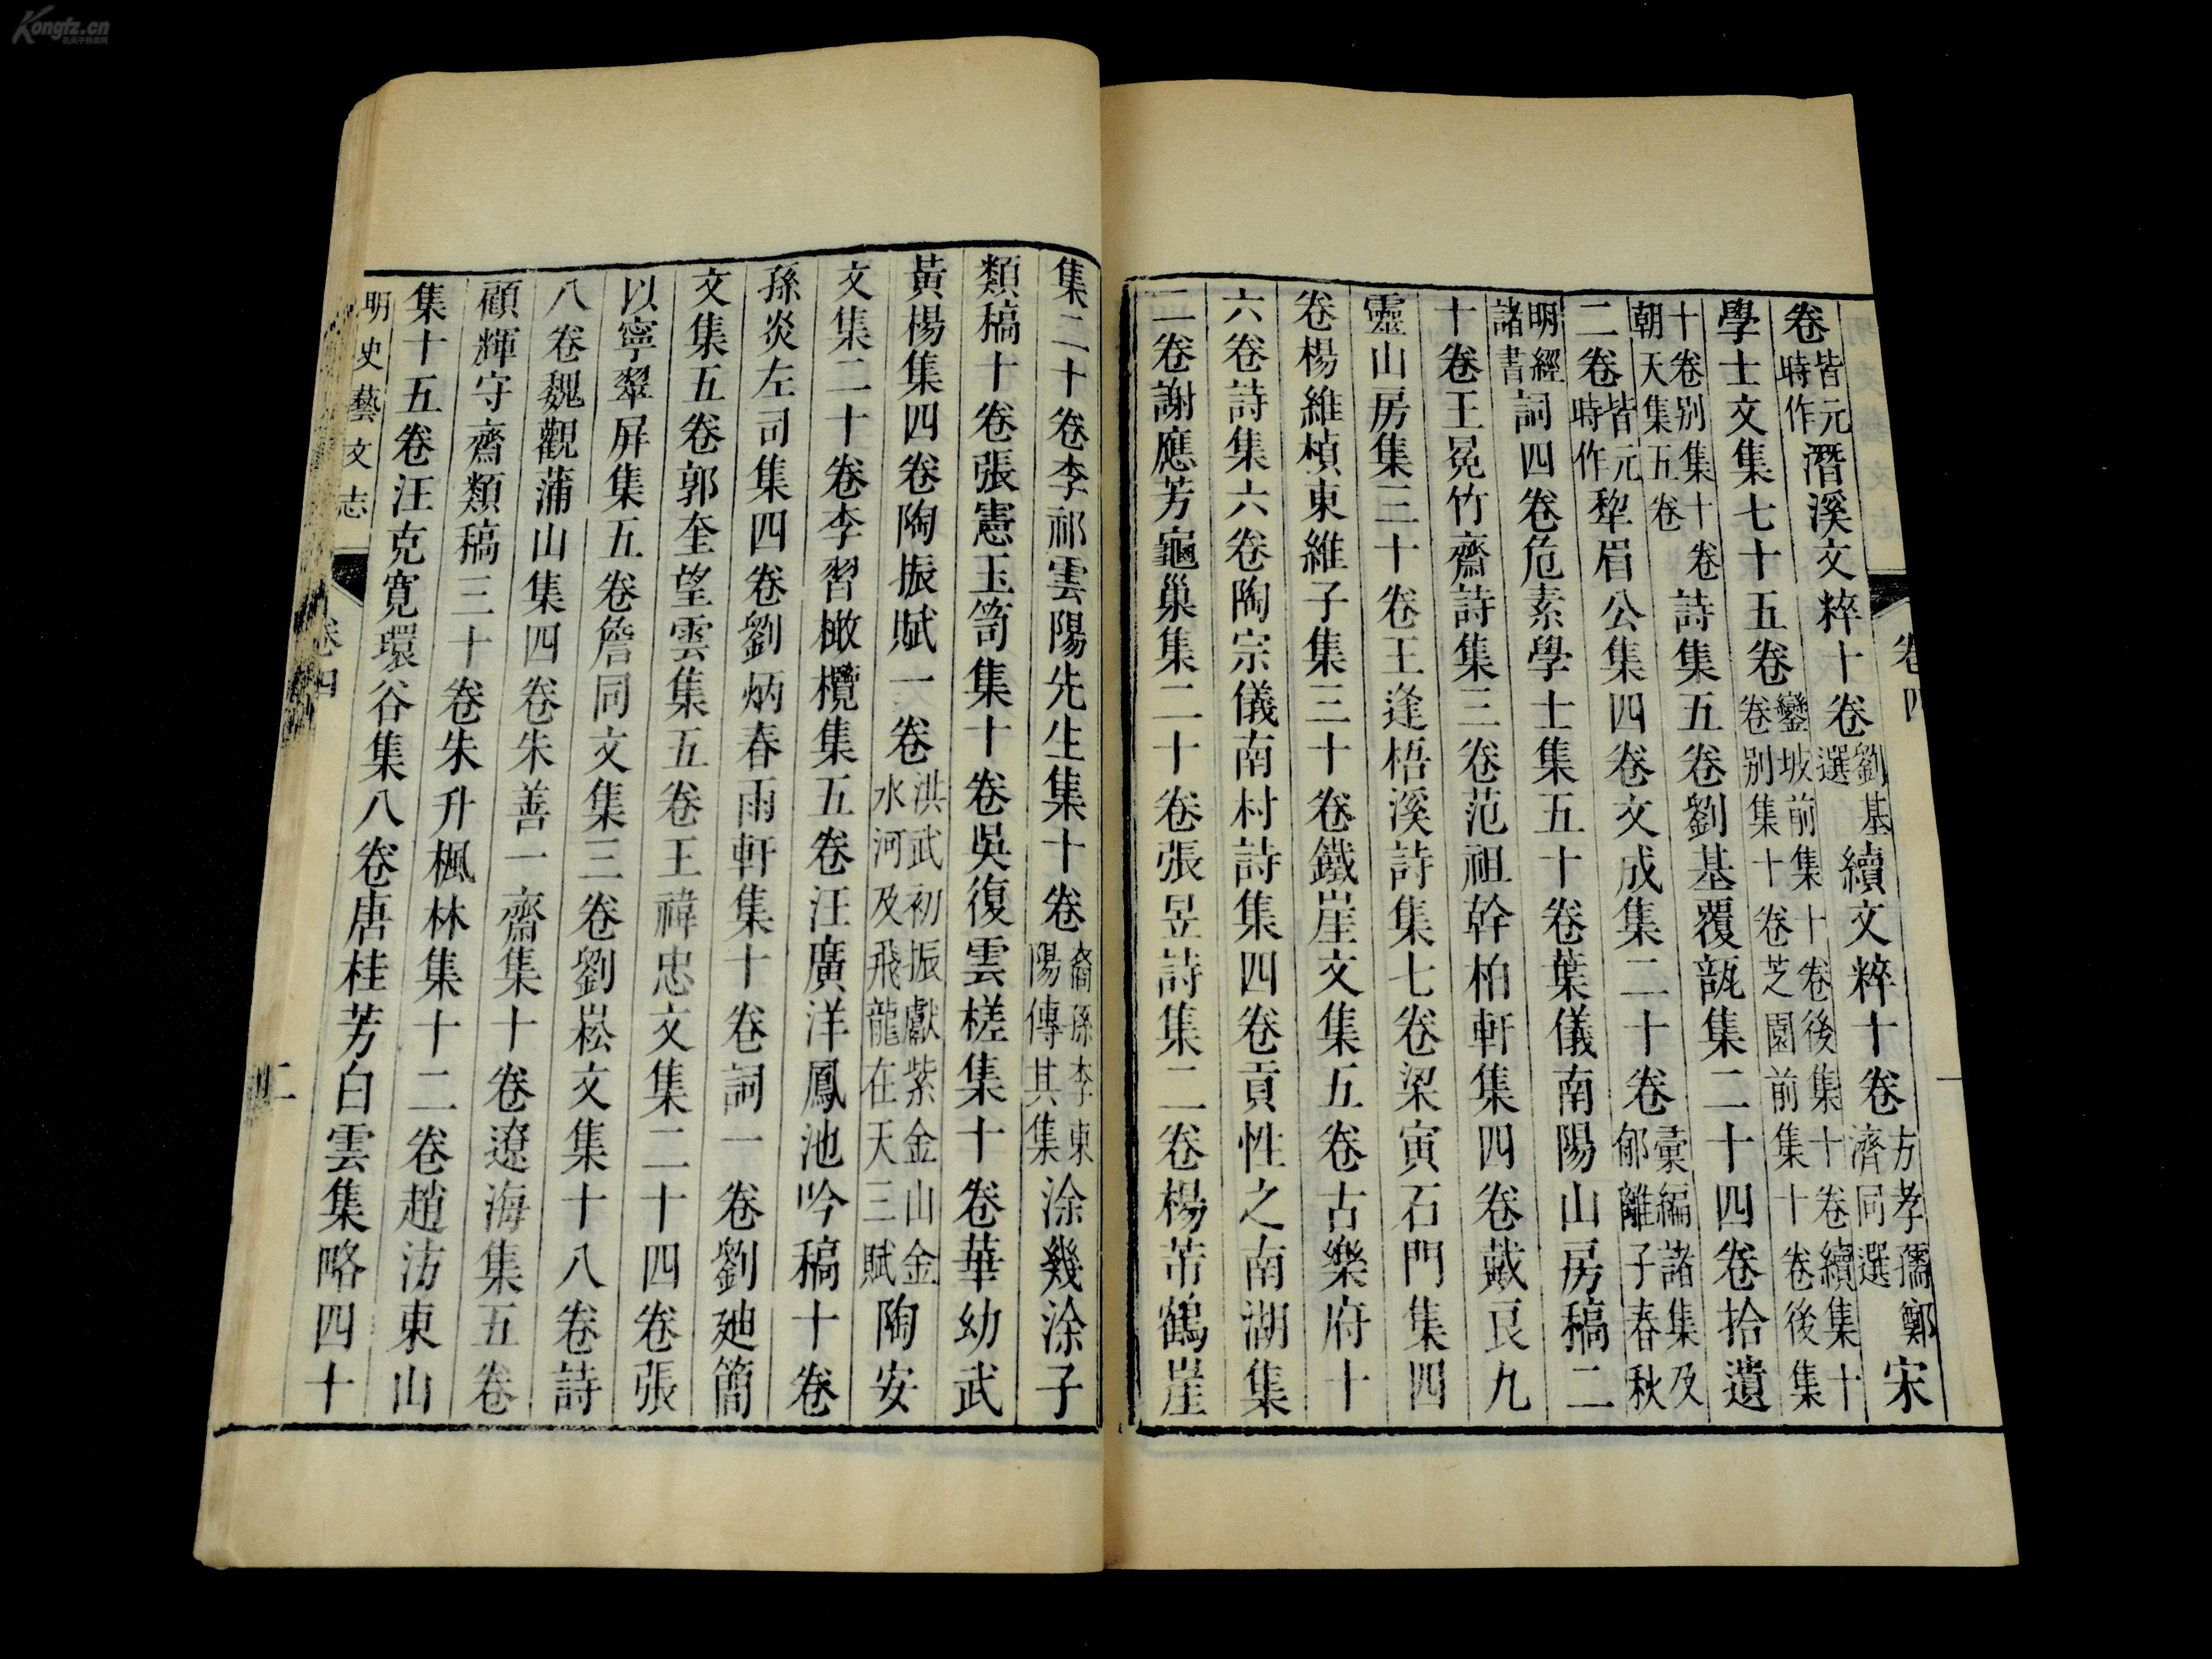 Kongfz.cn
孔夫子旧书网
卷四
一
卷皆元時作潛溪文粹十卷劉基選續文粹十卷方孝孺鄭濟同選宋
學士文集七十五卷鑾坡前集十卷後集十卷續集十卷别集十卷芝園前集十卷後集
十卷别集十卷朝天集五卷詩集五卷劉基覆瓿集二十四卷拾遺
二卷皆元時作犂眉公集四卷文成集二十卷彙編諸集及郁離子春秋
明經諸書詞四卷危素學士集五十卷葉儀南陽山房稿二
十卷王冕竹齋詩集三卷范祖幹柏軒集四卷戴良九
靈山房集三十卷王逢梧溪詩集七卷梁寅石門集四
卷楊維楨東維子集三十卷鐵崖文集五卷古樂府十
六卷詩集六卷陶宗儀南村詩集四卷貢性之南湖集
二卷謝應芳龜巢集二十卷張昱詩集二卷楊芾鶴崖
集二十卷李祁雲陽先生集十卷裔孫李東陽傳其集涂幾涂子
類稿十卷張憲玉笥集十卷吳復雲槎集十卷華幼武
黃楊集四卷陶振賦一卷洪武初振獻紫金山金水河及飛龍在天三賦陶安
文集二十卷李習橄欖集五卷汪廣洋鳳池吟稿十卷
孫炎左司集四卷劉炳春雨軒集十卷詞一卷劉廸簡
文集五卷郭奎望雲集五卷王禕忠文集二十四卷張
以寧翠屏集五卷詹同文集三卷劉崧文集十八卷詩
八卷魏觀蒲山集四卷朱善一齋集十卷遼海集五卷
顧輝守齋類稿三十卷朱升楓林集十二卷趙汸東山
集十五卷汪克寬環谷集八卷唐桂芳白雲集略四十
明史藝文志
卷四
二